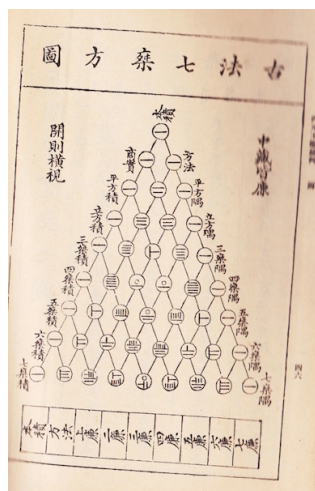 古法七椉方圖
中藏皆廉
開則橫視
本積
商實
方法
平方積
平方隅
立方積
立方隅
三椉積
三椉隅
四椉積
四椉隅
五椉積
五椉隅
六椉積
六椉隅
七椉積
七椉隅
本積
方法
上廉
二廉
三廉
四廉
五廉
六廉
七廉
四六